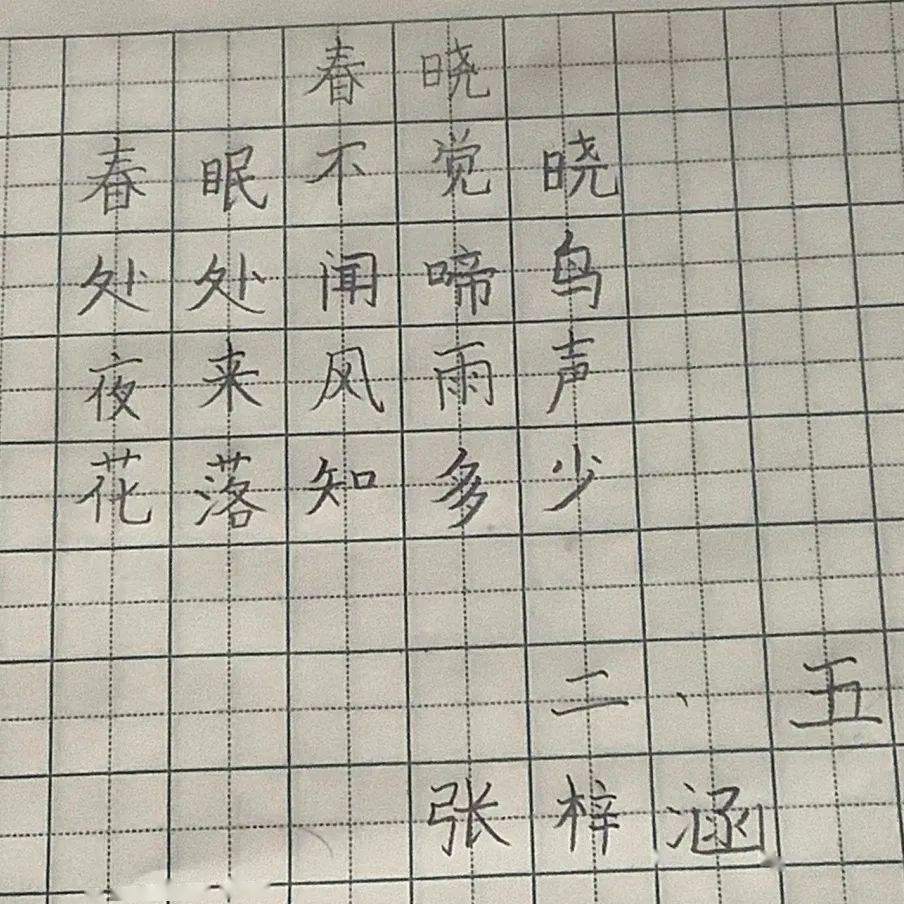 春晓
春眠不觉晓
处处闻啼鸟
夜来风雨声
花落知多少
二、五
张梓涵